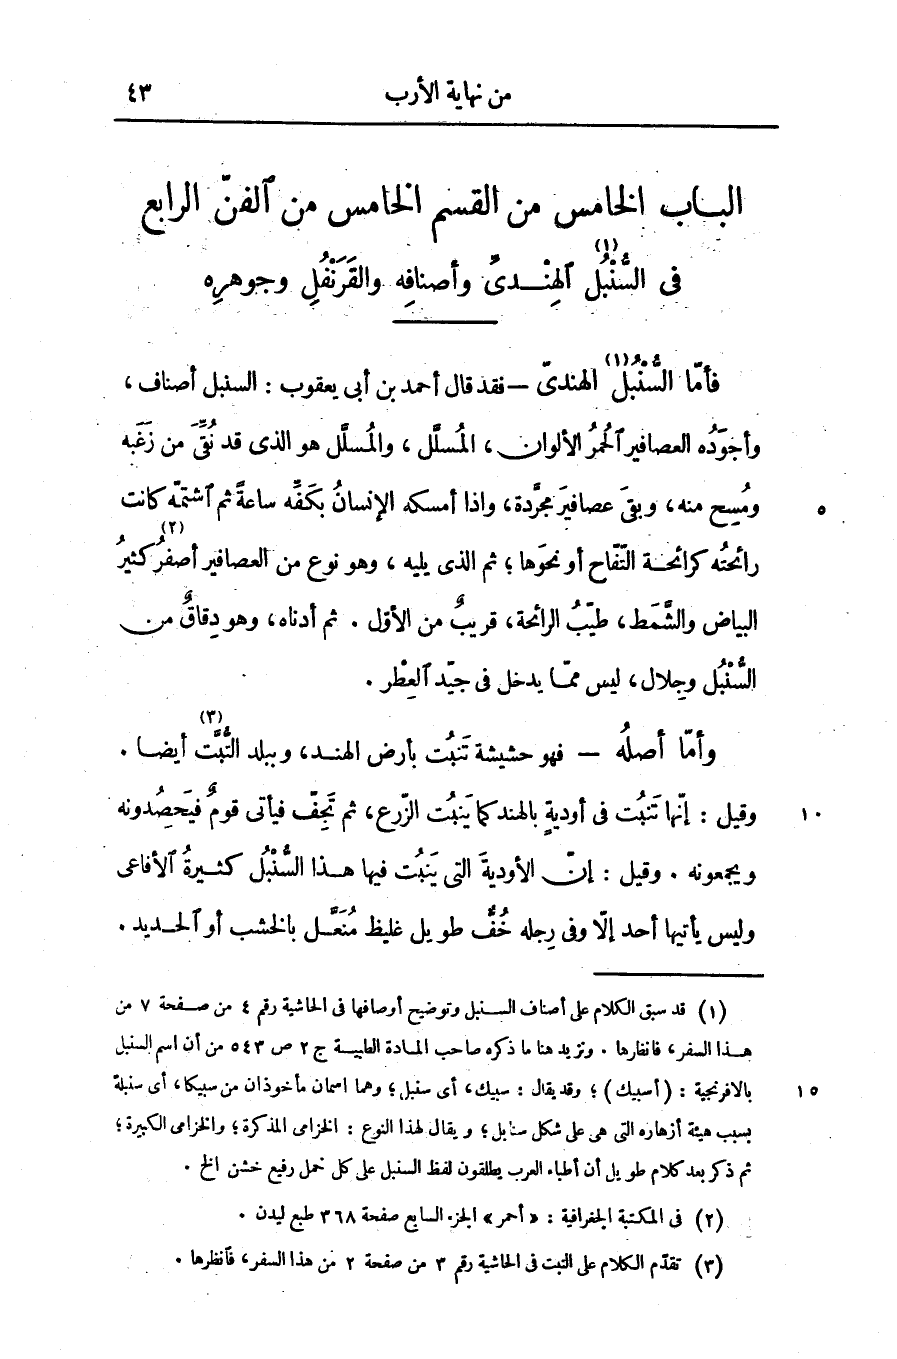 من نهاية الأرب ٤٣
الباب الخامس من القسم الخامس من ٱلفنّ الرابع
فى السُّنْبُل (١) ٱلهِنْدىّ وأصنافِه والقَرَنْفُلِ وجوهرِه
فأمّا السُّنْبُل (١) الهندىّ – فقد قال أحمد بن أبى يعقوب : السنبل أصناف ،
وأجوَدُه العصافير ٱلحُمرُ الألوان ، المُسلَّل ، والمُسلَّل هو الذى قد نُقِّىَ من زَغَبه
٥ ومُسِح منه ، وبقىَ عصافيرَ مجرَّدة ، واذا أمسكه الإنسانُ بكَفِّه ساعةً ثم ٱشتمّه كانت
رائحتُه كرائحة التّفّاح أو نحوَها ؛ ثم الذى يليه ، وهو نوع من العصافير أصفرُ (٢) كثيرُ
البياض والشَّمَط ، طيّبُ الرائحة ، قريبٌ من الأوّل . ثم أدناه ، وهو دِقاقٌ من
السُّنْبُل وجِلال ، ليس ممّا يدخل فى جيّد ٱلعِطْر .
وأمّا أصلُه – فهو حشيشة تَنبُت بأرض الهند ، وببلد التُّبَّت (٣) أيضا .
١٠ وقيل : إنّها تَنبُت فى أوديةٍ بالهند كما يَنبُت الزّرع ، ثم تَجِفّ فيأتى قومٌ فيَحصُدونه
ويجمعونه . وقيل : إنّ الأوديةَ التى يَنبُت فيها هذا السُّنْبُل كثيرةُ ٱلأفاعى
وليس يأتيها أحد إلّا وفى رِجله خُفٌّ طويل غليظ مُنَعَّل بالخشب أو ٱلحديد .
(١) قد سبق الكلام على أصناف السنبل وتوضيح أوصافها فى الحاشية رقم ٤ من صفحة ٧ من
هذا السفر ، فانظرها . ونزيد هنا ما ذكره صاحب المادة الطبية ج ٢ ص ٥٤٣ من أن اسم السنبل
١٥ بالافرنجية : (أسبيك) ؛ وقد يقال : سبيك ، أى سنبل ؛ وهما اسمان مأخوذان من سبيكا ، أى سنبلة
بسبب هيئة أزهاره التى هى على شكل سنابل ؛ ويقال لهذا النوع : الخزامى المذكرة ؛ والخزامى الكبيرة ؛
ثم ذكر بعد كلام طويل أن أطباء العرب يطلقون لفظ السنبل على كل خمل رفيع خشن الخ .
(٢) فى المكتبة الجغرافية : «أحمر» الجزء السابع صفحة ٣٦٨ طبع ليدن .
(٣) تقدّم الكلام على التبت فى الحاشية رقم ٣ من صفحة ٢ من هذا السفر ، فٱنظرها .